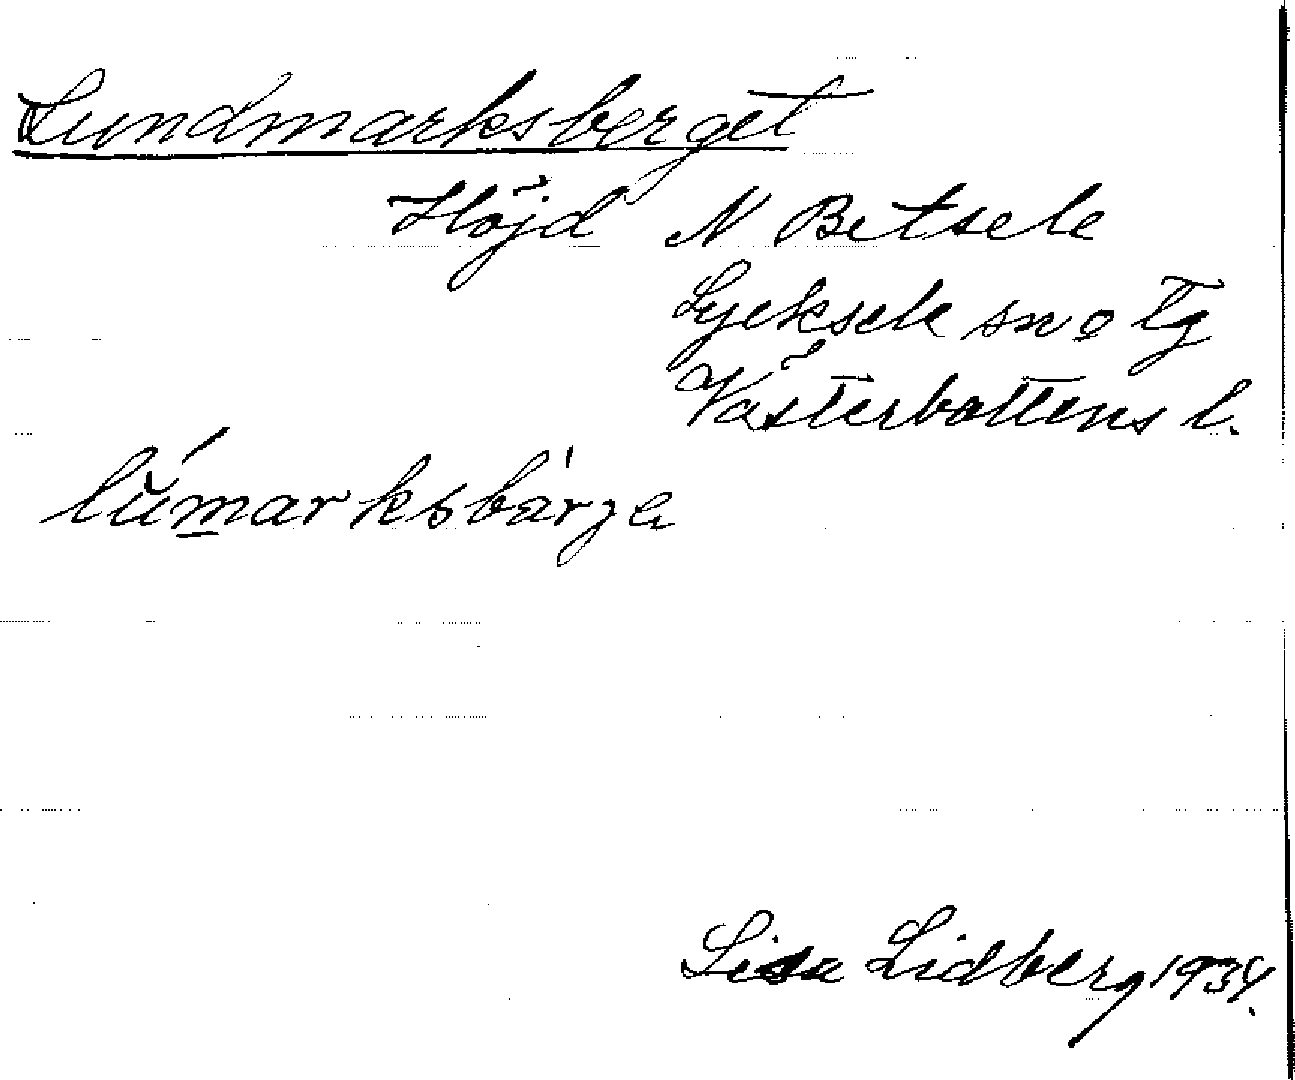 Lundmarksberget
Höjd N Betsele
Lycksele sn o tg
Västerbottens l.
lúmarksbàrje
Lisa Lidberg 1934.